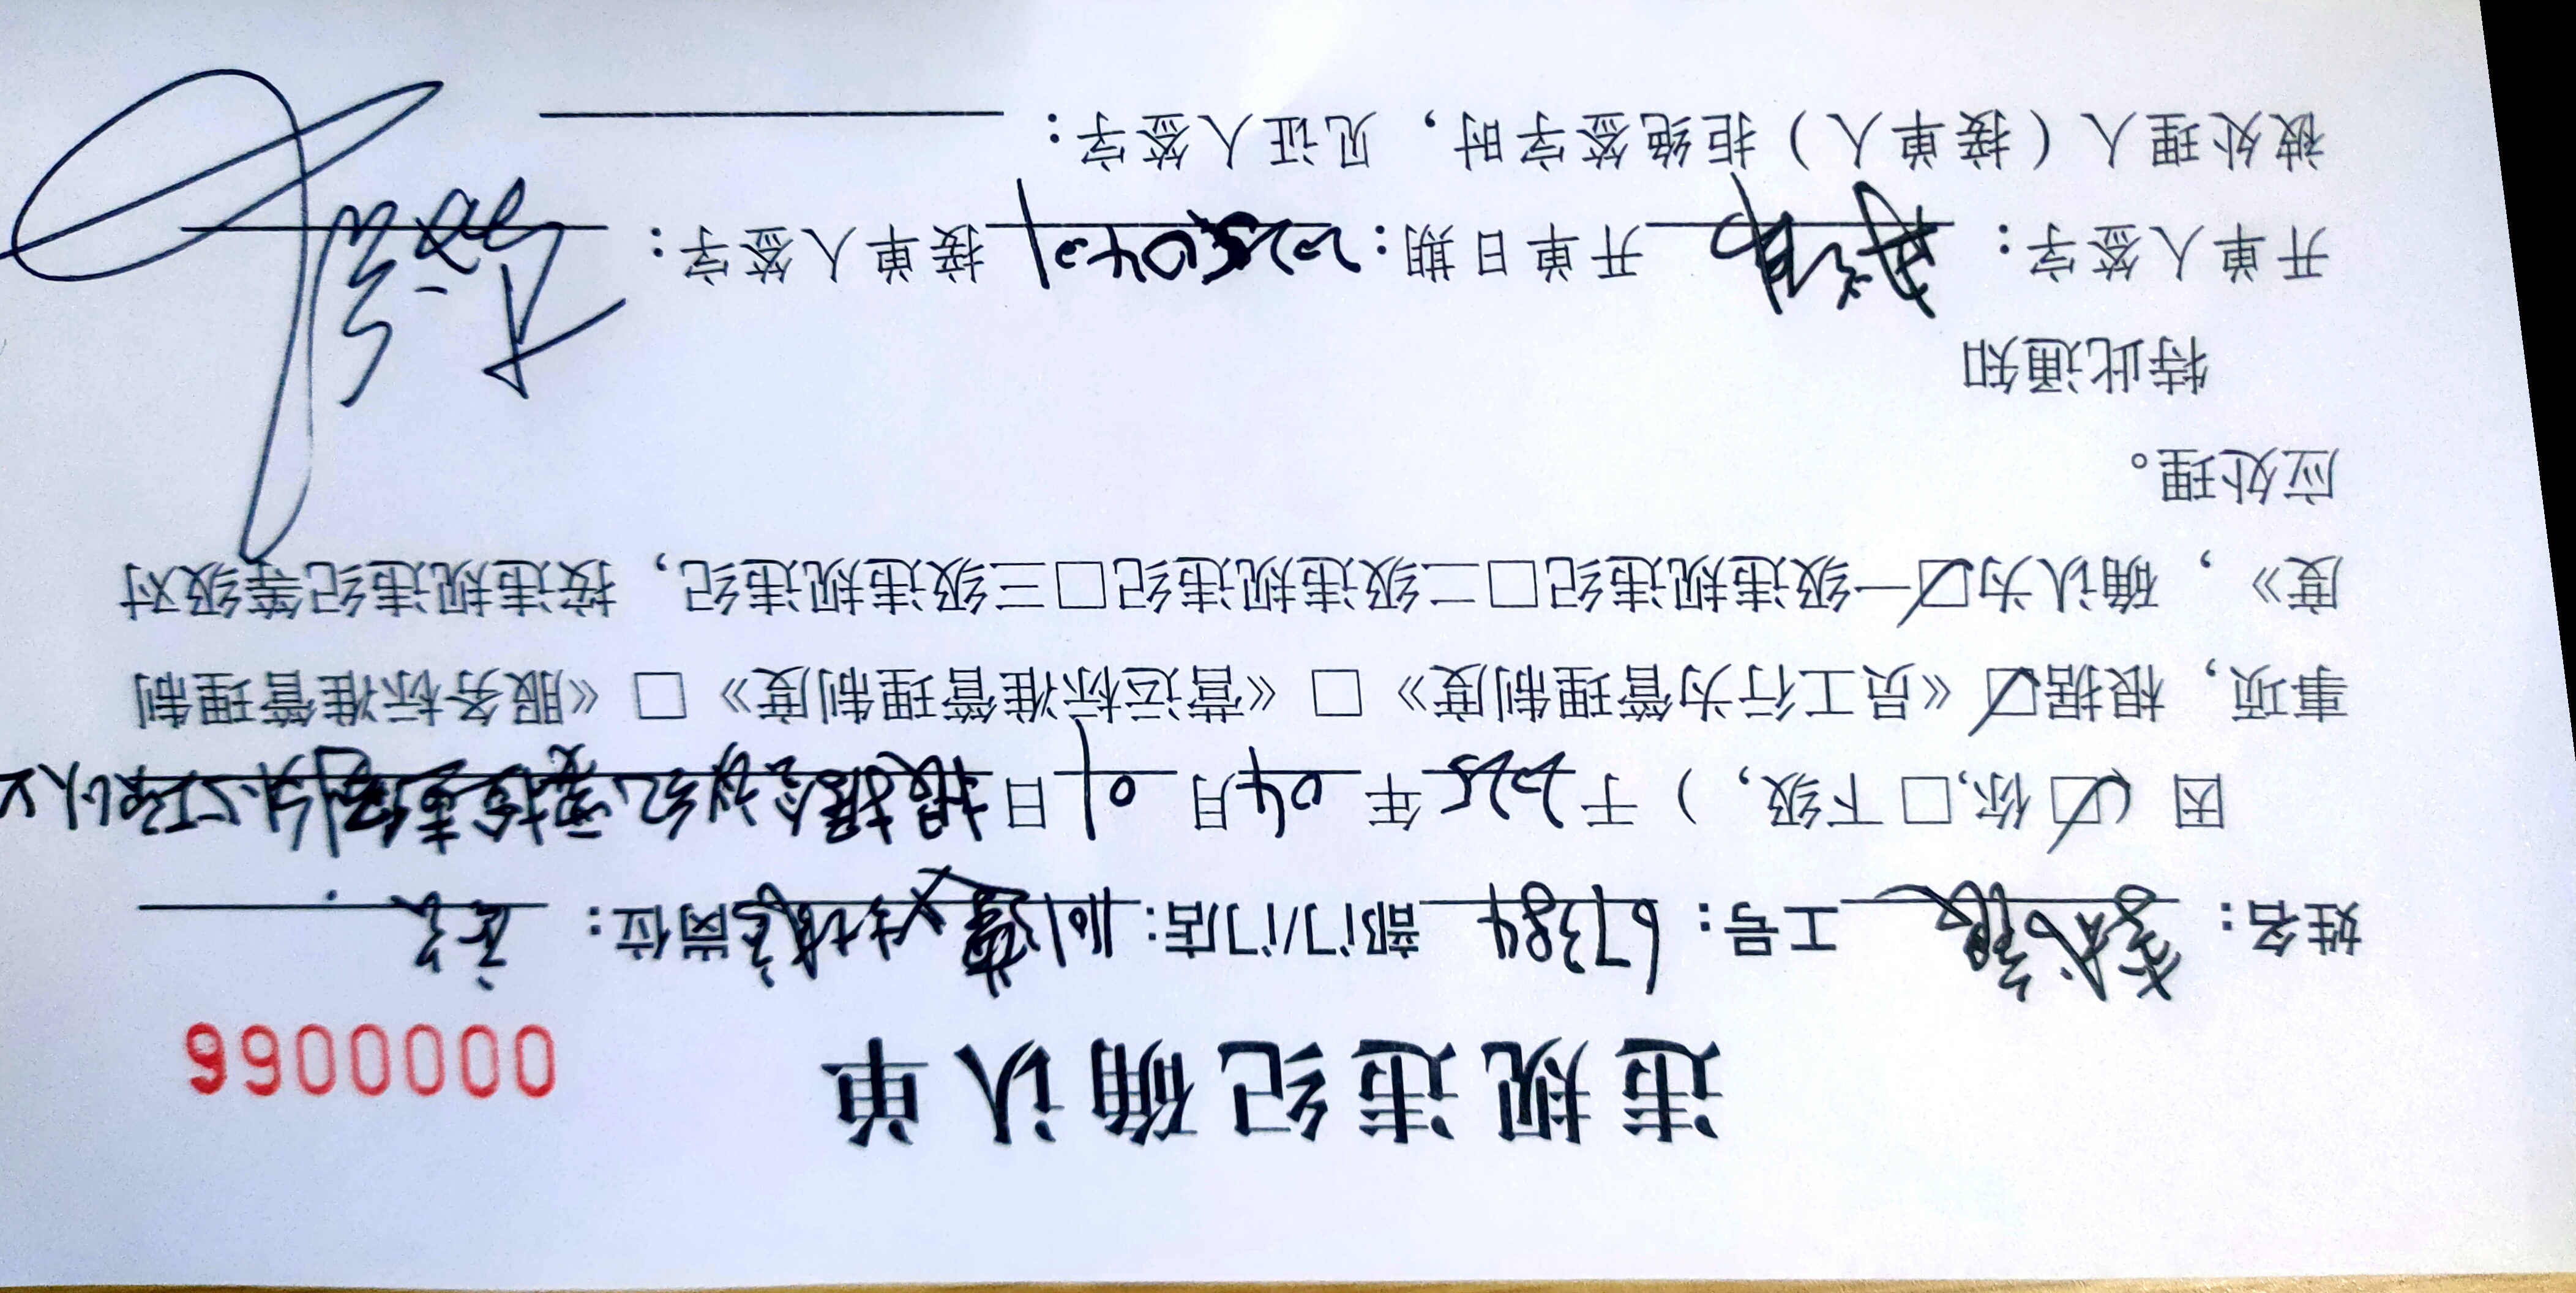 违规违纪确认单
0000066
姓名： 工号：67384 部门/门店： 岗位：
因（☑你,□下级,）于2025年04月01日根据会议纪要检查
事项，根据☑《员工行为管理制度》□《营运标准管理制度》□《服务标准管理制
度》，确认为☑一级违规违纪□二级违规违纪□三级违规违纪，按违规违纪等级对
应处理。
特此通知
开单人签字： 开单日期：20250401 接单人签字：
被处理人（接单人）拒绝签字时，见证人签字：